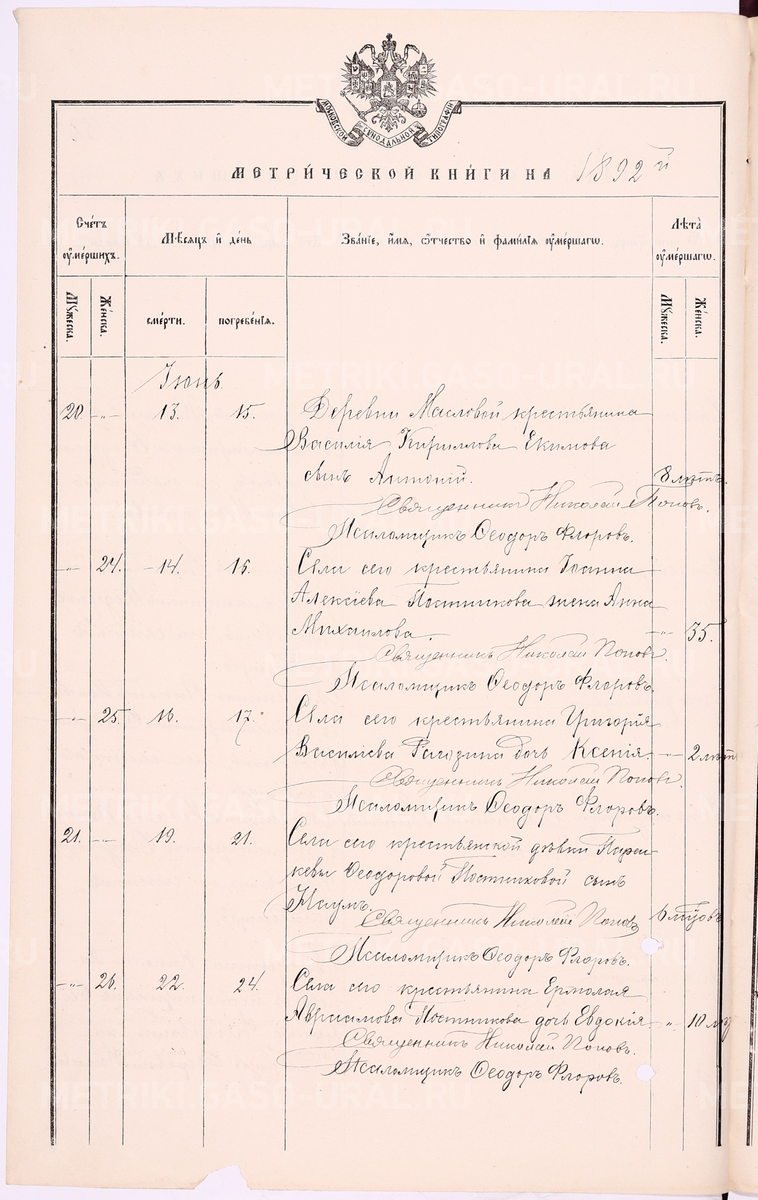 МОСКОВСКОЙ СИНОДАЛЬНОЙ ТИПОГРАФІИ
МЕТРИ́ЧЕСКОЙ КНИ́ГИ НА 1892 й
Сче́тъ оу҆ме́ршихъ.
Мѣ́сяцъ и҆ де́нь
Зва́нїе, и҆́мя, ѻ҆́тчество и҆ фами́лїя оу҆ме́ршагѡ.
Лѣ́та оу҆ме́ршагѡ.
Мꙋ́жеска.
Же́нска.
сме́рти.
погребе́нїя.
Мꙋ́жеска.
Же́нска.
Іюнь
20 -„- 13. 15. Деревни Масловой крестьянина
Василія Кириллова Екимова
сынъ Антоній. 8 лѣтъ.
Священникъ Николай Поповъ.
Псаломщикъ Ѳеодоръ Флоровъ.
-„- 24. 14. 16. Села сего крестьянина Іоанна
Алексіева Постникова жена Анна
Михаилова. -„- 35.
Священникъ Николай Поповъ.
Псаломщикъ Ѳеодоръ Флоровъ.
-„- 25. 16. 17. Села сего крестьянина Григорія
Василева Рагозина дочь Ксенія. -„- 2 лѣт
Священникъ Николай Поповъ.
Псаломщикъ Ѳеодоръ Флоровъ.
21. -„- 19. 21. Села сего крестьянской дѣвки Парас
кевы Ѳеодоровой Постниковой сынъ
Наумъ. 6 мѣ
Священникъ Николай Поповъ
Псаломщикъ Ѳеодоръ Флоровъ.
-„- 26. 22. 24. Села сего крестьянина Ермолая
Авраамова Постникова дочь Евдокія -„- 10 м
Священникъ Николай Поповъ.
Псаломщикъ Ѳеодоръ Флоровъ.
METRIKI.GASO-URAL.RU